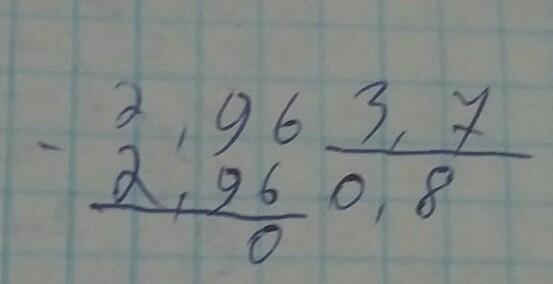 2,96 3,7
- 2,96 0,8
0